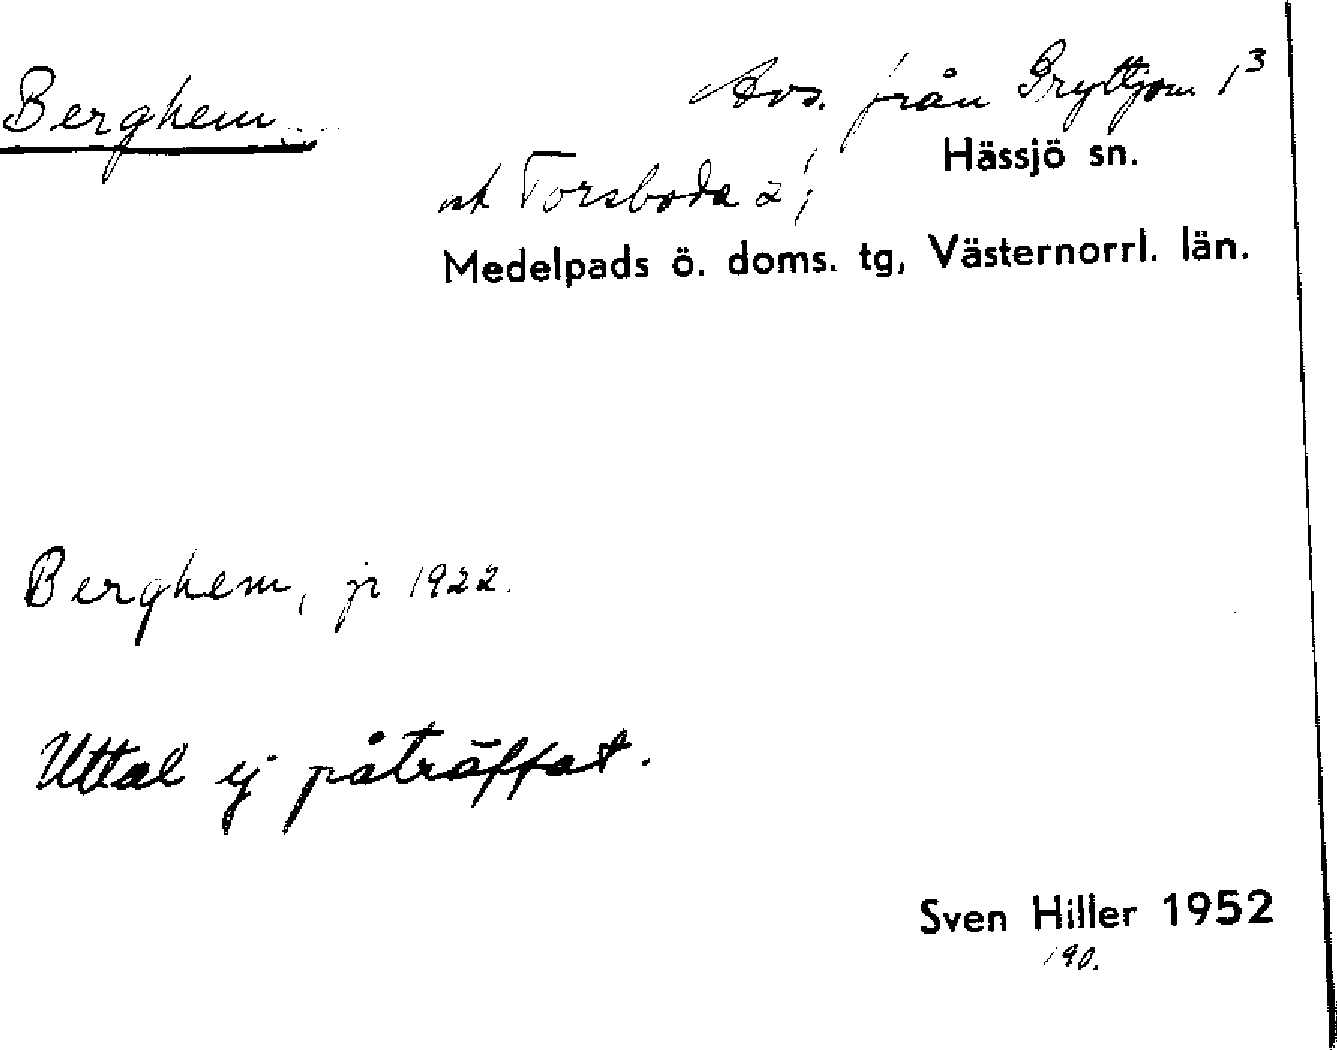 Berghem
Avs. från Gryttjom 1³
Hässjö sn.
o. Torsboda 2¹
Medelpads ö. doms. tg, Västernorrl. län.
Berghem, jr 1922.
Uttal ej påträffat.
Sven Hiller 1952
190.